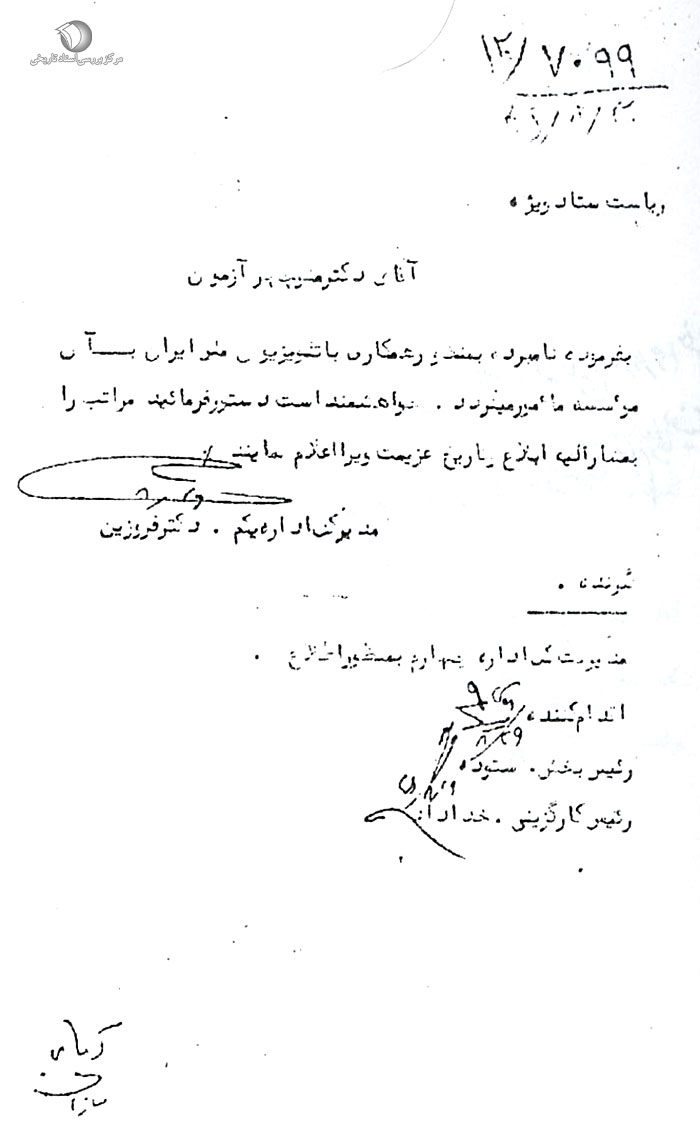 مرکز بررسی اسناد تاریخی
۱۲/۷۰۹۹
ریاست ستاد ویژه
آقای دکتر منوچهر آزمون
بفرموده نامبرده بمنظور همکاری با تلویزیون ملی ایران بـــآن
موسسه مامور میگردد . خواهشمند است دستور فرمائید مراتب را
بمشارالیه ابلاغ و تاریخ عزیمت ویرا اعلام نمایند
مدیرکل اداره یکم . دکتر فروزین
گیرنده .
مدیریت کل اداره چهارم بمنظور اطلاع .
اقدام کننده
رئیس بخش. ستوده
رئیس کارگزینی . خداداد